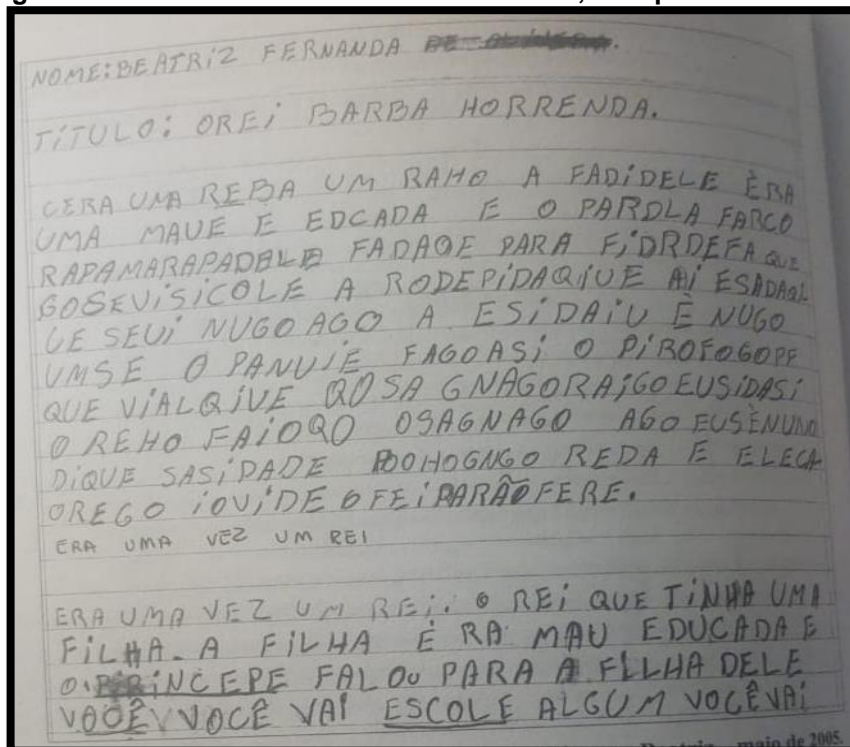 NOME: BEATRIZ FERNANDA
TÍTULO: OREI BARBA HORRENDA.
CERA UMA REBA UM RAHO A FADIDELE ÈRA
UMA MAUE E EDCADA E O PAROLA FARCO
RAPAMARAPADELE FADAQE PARA FIDRDEFA QUE
GOSEVISICOLE A RODEPIDAQIUE AI ESADAQL
CE SEUI NUGO AGO A ESIDAIU È NUGO
UMSE O PANUIE FAGOASI O PIROFOGOPF
QUE VIALQIVE QOSA GNAGORAIGO EUSIDASI
O REHO FAIOQO OSAGNAGO AGO EUSÈNUNO
DIQUE SASIDADE POOHOGNGO REDA E ELECA
OREGO IOVIDE O FEIPARÃOFERE.
ERA UMA VEZ UM REI
ERA UMA VEZ UM REI. O REI QUE TINHA UMA
FILHA. A FILHA É RA MAU EDUCADA E
O PRINCEPE FALOU PARA A FLLHA DELE
VOCÊ VOCÊ VAI ESCOLE ALGUM VOCÊ VAI
maio de 2005.